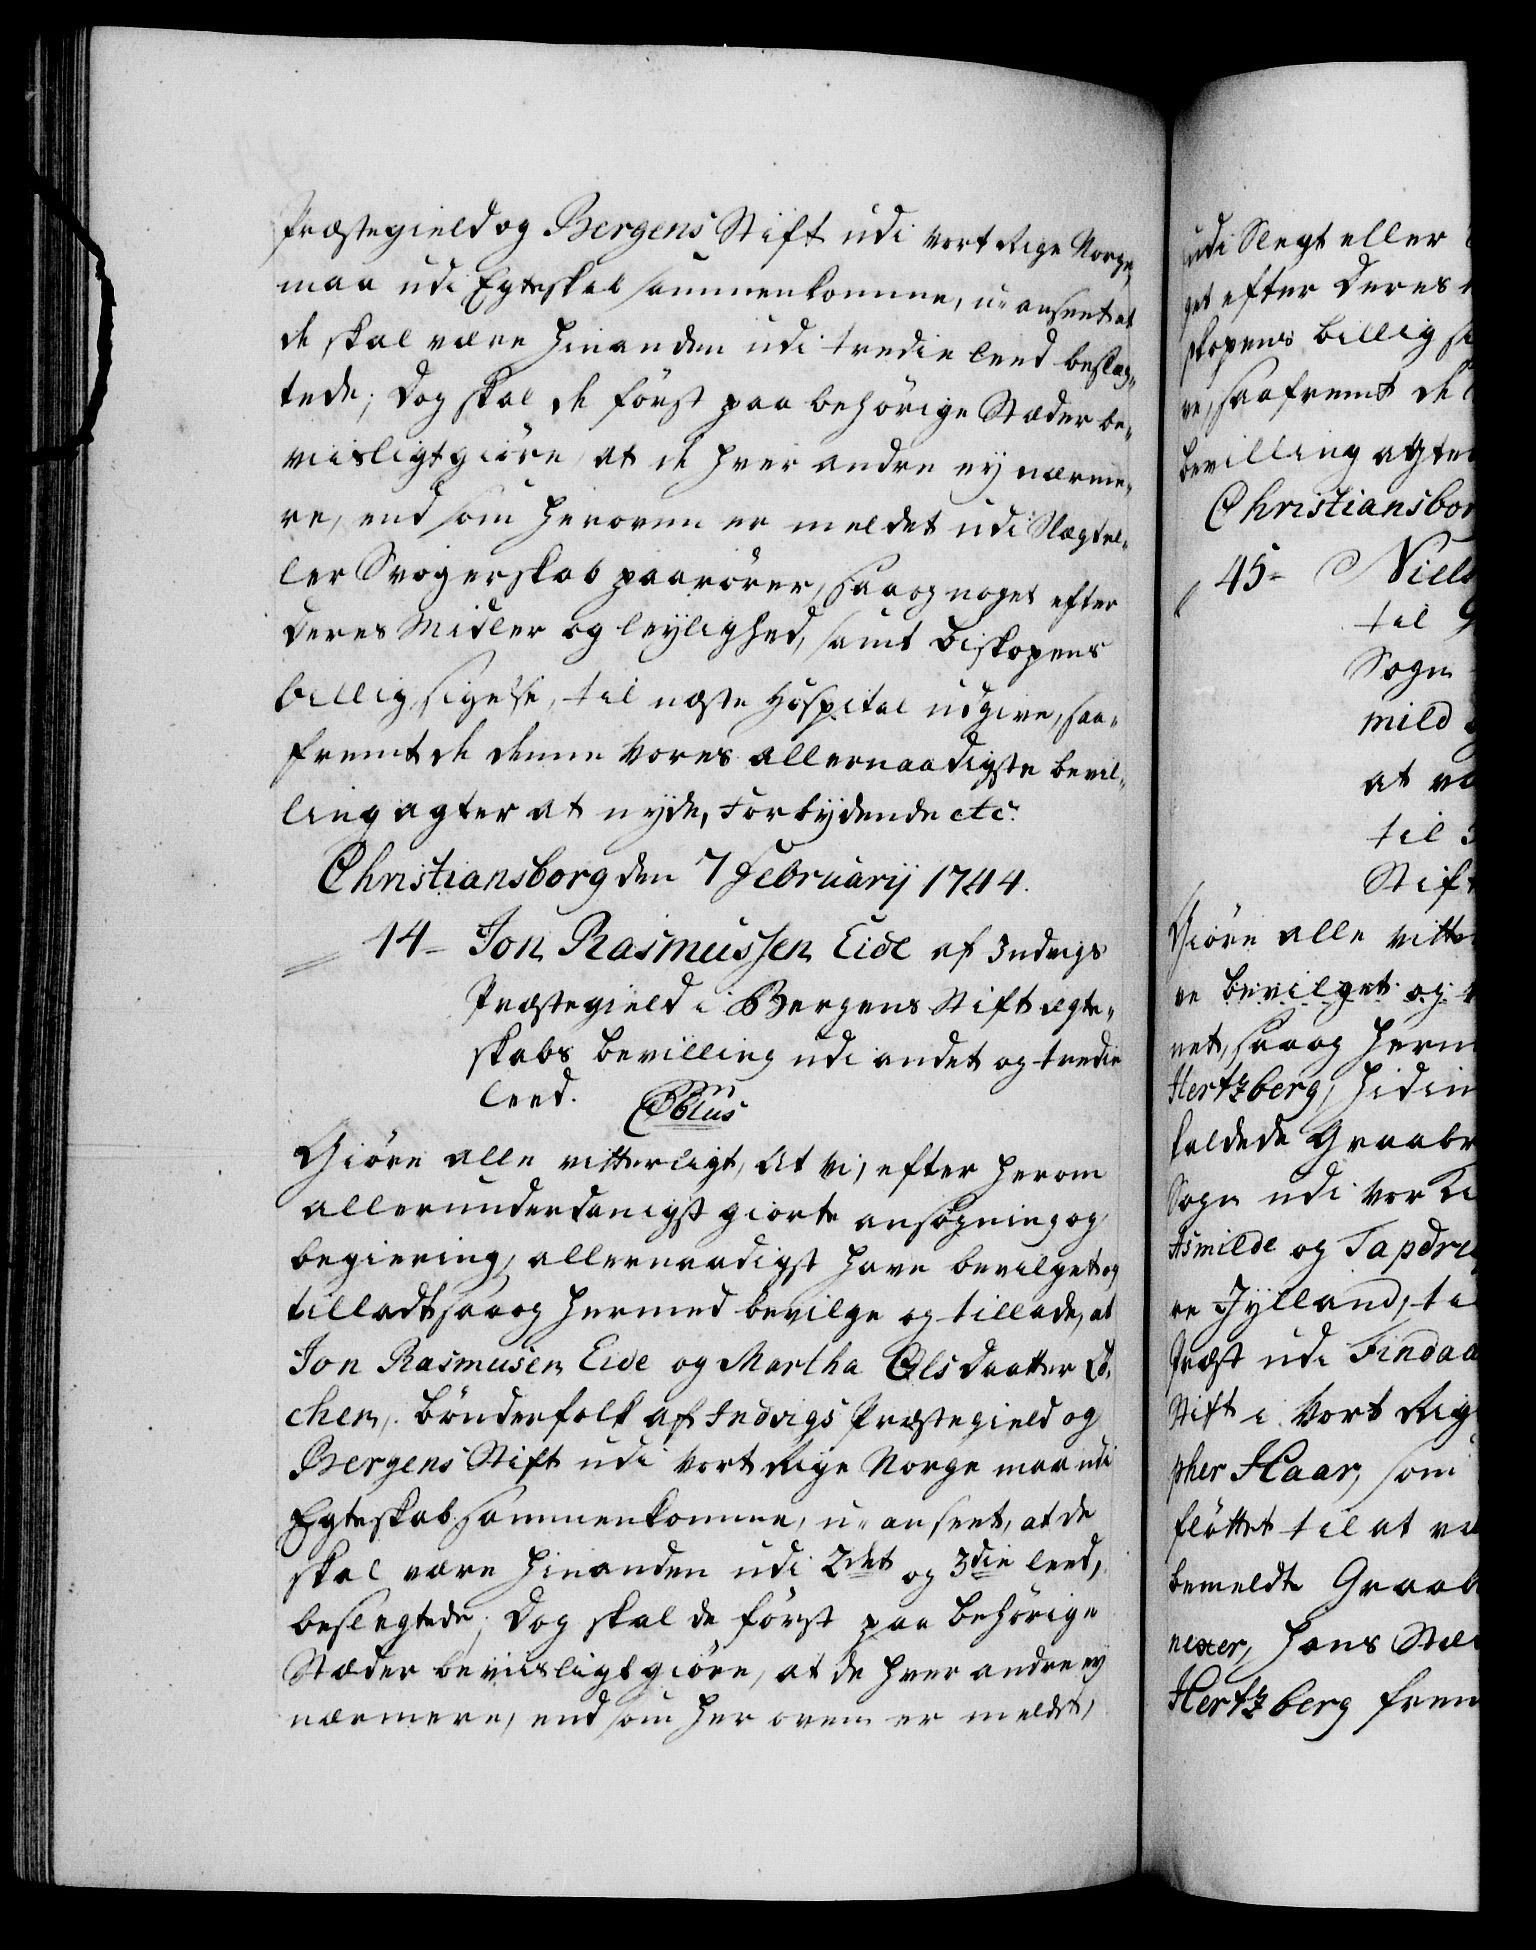 Præstegield og Bergens Stift udi vort Rige Norge,
maa udi Egteskab sammenkomme, u-anseet at
de skal være hinanden udi tredie leed beslæg-
tede; Dog skal de först paa behörige Stæder be-
viisligtgiöre, at de hver andre ey nærme-
re, end som heroven er meldet udi Slægt el-
ler Svogerskab paarörer, saa og noget efter
deres Midler og leylighed, samt Biskopens
billig sigelse, til næste Hospital udgive, saa-
fremt de denne Vores allernaadigste bevil-
ling agter at nyde, Forbydende etc.
Christiansborg den 7 Februarij 1744.
44- Jon Rasmussen Eide af Indvigs
Præstegield i Bergens Stift ægte-
skabs bevilling udi andet og tredie
leed.
Giöre alle vitterligt, At Vi, efter herom
allerunderdanigst giorte ansögning og
begiering, allernaadigst have bevilget og
tilladt, saa og hermed bevilge og tillade, at
Jon Rasmusen Eide og Martha Olsdaatter
chen, bönderfolk af Indvigs Præstegield og
Bergens Stift udi vort Rige Norge maa udi
Egteskab sammenkomme, u-anseet, at de
skal være hinanden udi 2det og 3die leed,
beslegtede; Dog skal de först paa behörige
Stæder beviisligtgiöre, at de hver andre ey
nærmere, end som her oven er meldt,
udi Slegt eller
get efter deres
skopens billig si
re, saafremt de
bevilling agter
Christiansbor
45- Niels
til
Sogn
mild
at væ
til
Stift
Giöre alle vitter
re bevilget og
net, saa og herm
Hertzberg, hidin
kaldede Graabr
Sogn udi Vor
Asmilde og Tapdru
re Jylland, ti
Præst udi Findaa
Stift i Vort Rig
pher Haar, som
flöttet til at væ
bemeldte Graab
nexer, hans Stæ
Hertzberg frem